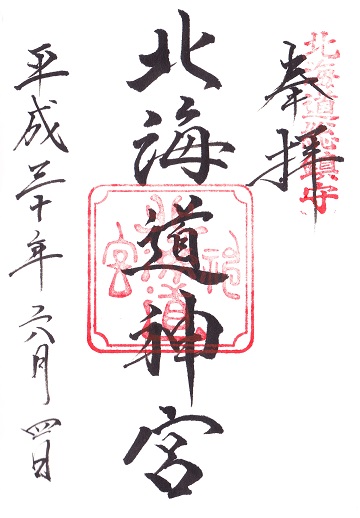 北海道総鎮守
奉拝
北海道神宮
平成三十年六月四日